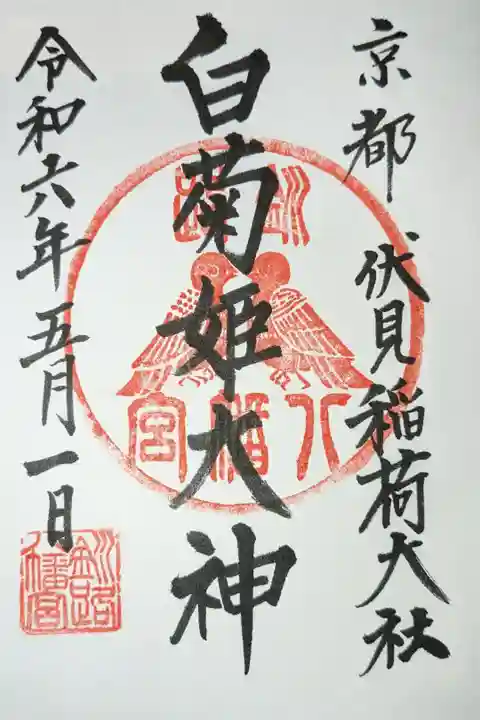 京都 伏見稲荷大社
白菊姫大神
八幡宮
令和六年五月一日